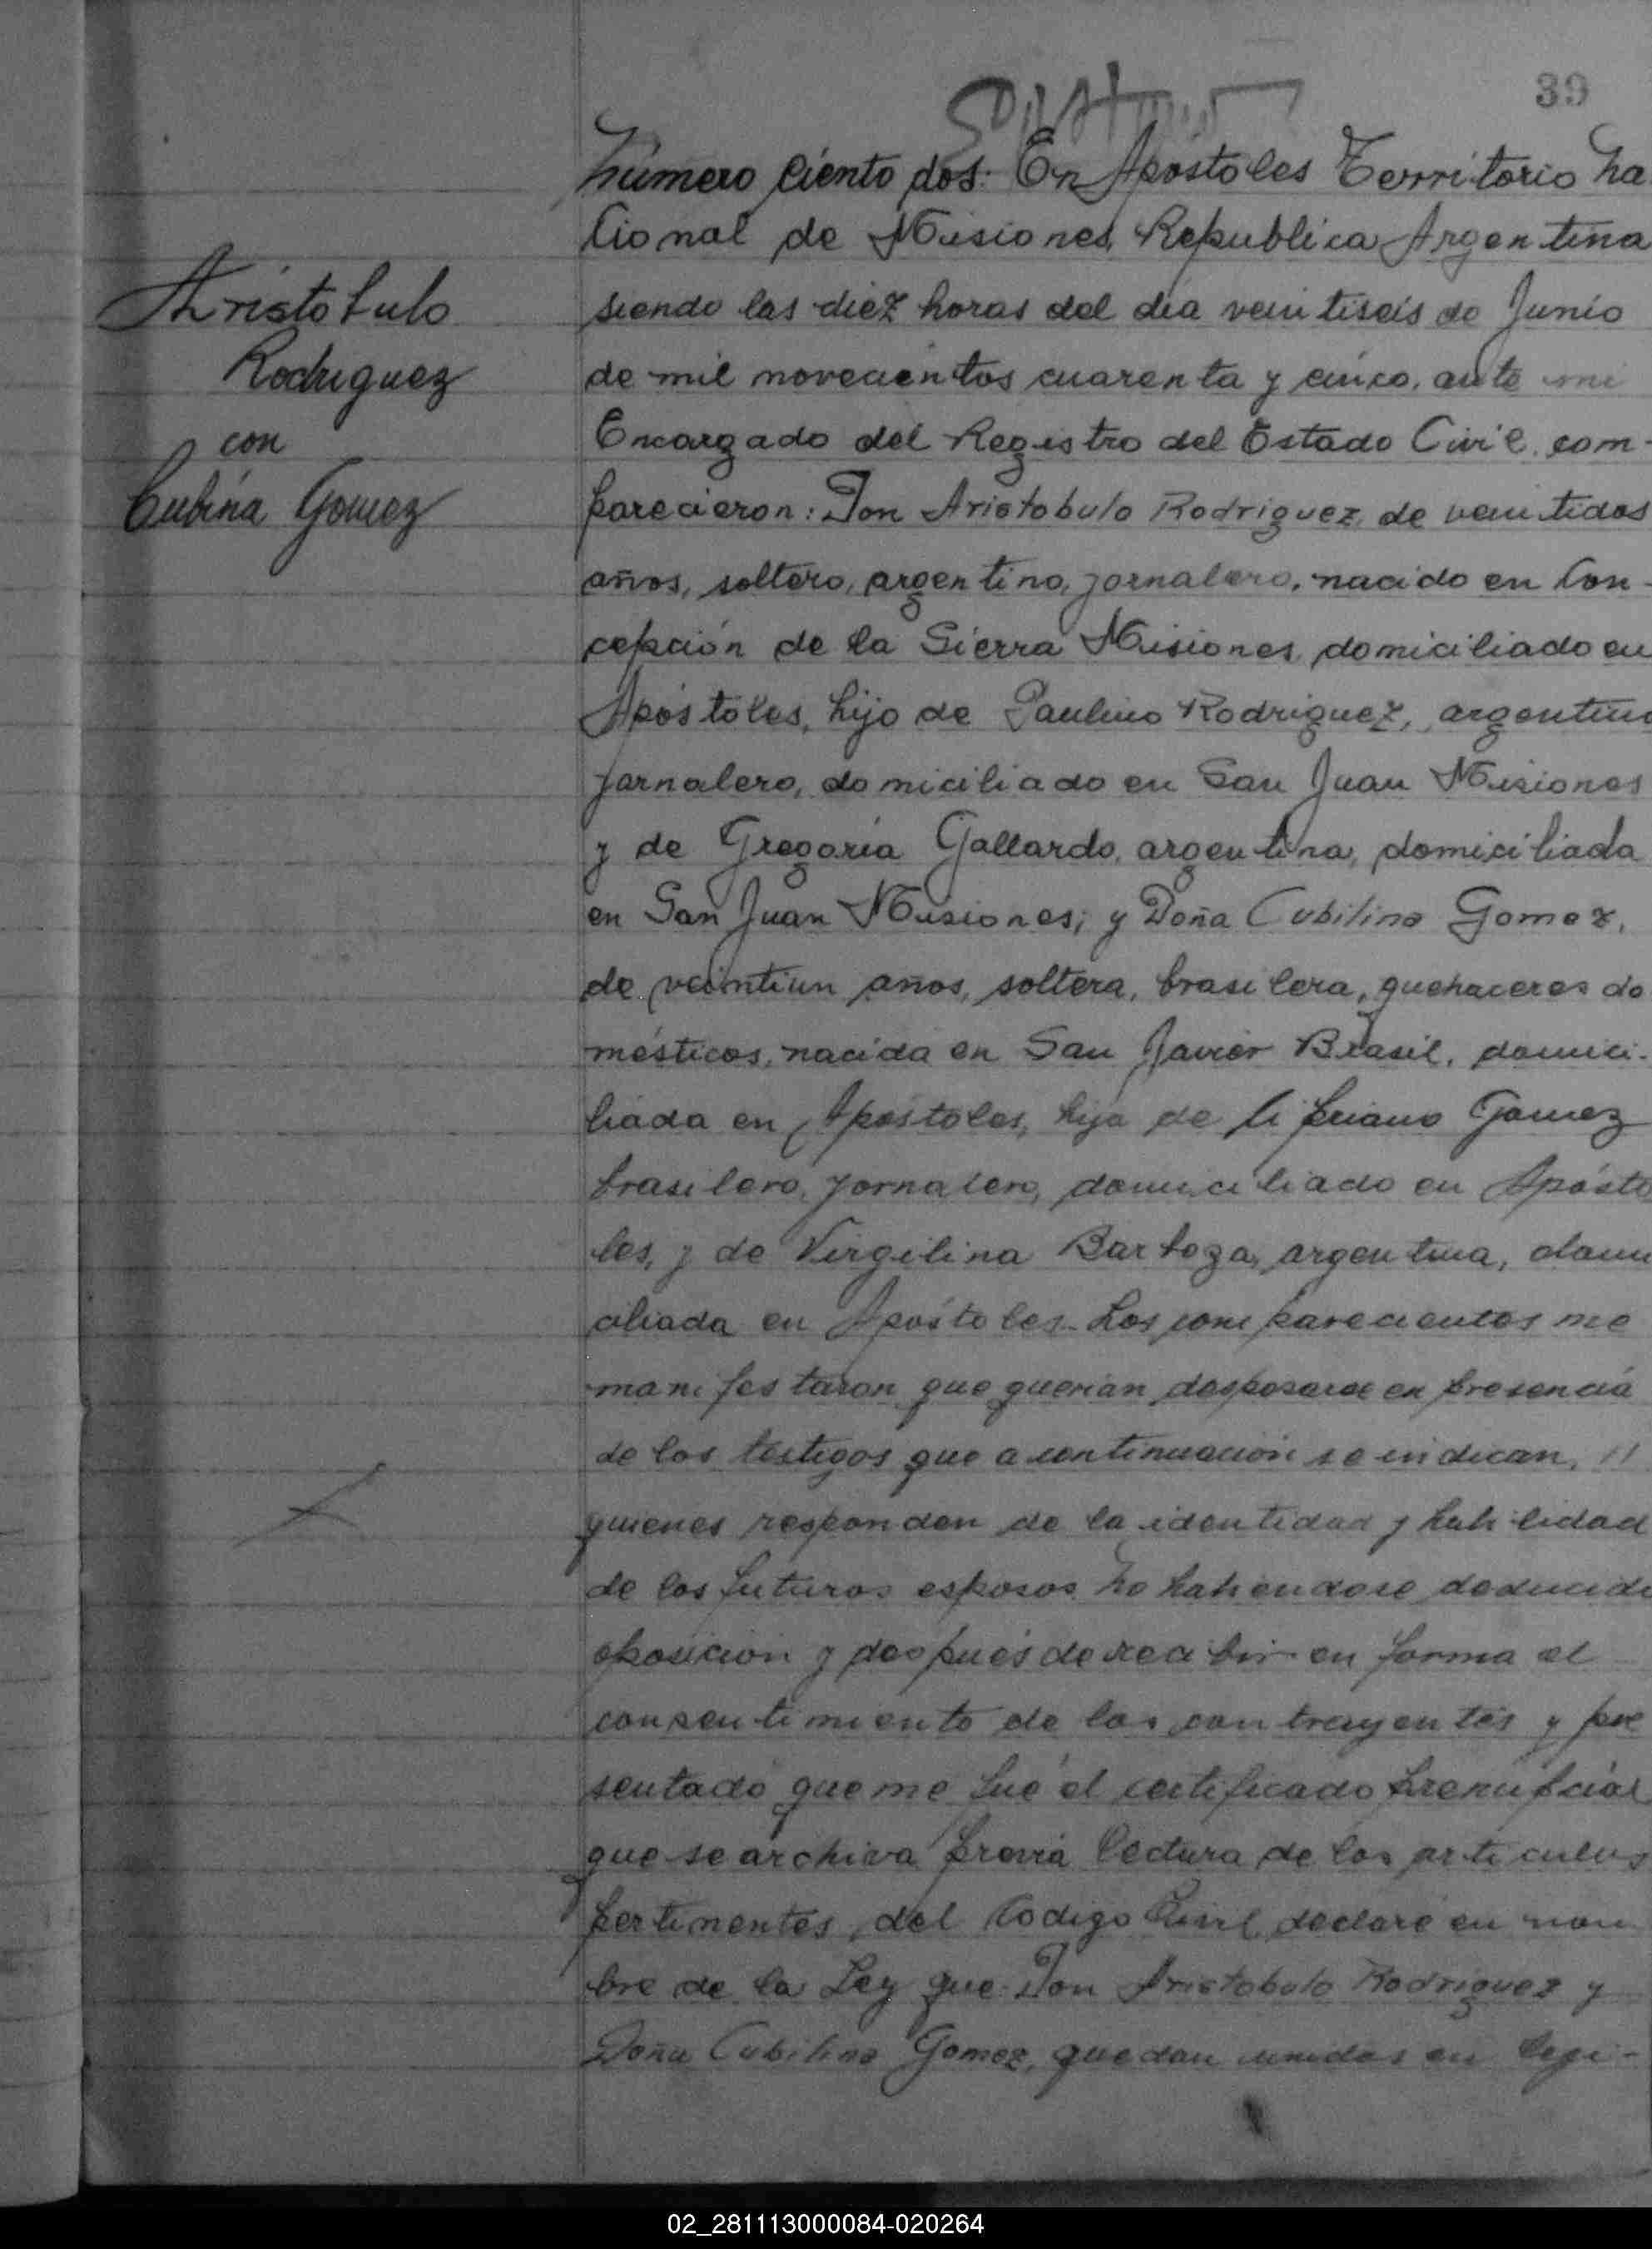 39
Número ciento dos: En Apóstoles Territorio Na
cional de Misiones, Republica Argentina
siendo las diez horas del día veintiseis de Junio
de mil novecientos cuarenta y cinco, ante mi
Encargado del Registro del Estado Civil, com-
parecieron: Don Aristobulo Rodriguez, de veintidos
años, soltero, argentino, jornalero, nacido en Con-
cepción de la Sierra Misiones, domiciliado en
Apóstoles, hijo de Paulino Rodriguez, argentino
jornalero, domiciliado en San Juan Misiones
y de Gregoria Gallardo, argentina, domiciliada
en San Juan Misiones; y Doña Cubilina Gomez,
de veintiun años, soltera, brasilera, quehaceres do
mésticos, nacida en San Javier Brasil, domici-
liada en Apóstoles, hija de Cipriano Gomez
brasilero, jornalero, domiciliado en Apósto
les, y de Virgilina Barboza, argentina, domi
ciliada en Apóstoles. Los comparecientes me
manifestaron que querian desposarse en presencia
de los testigos que a continuación se indican,
quienes responden de la identidad y habilidad
de los futuros esposos. No habiendose deducido
oposición y después de recibir en forma el
consentimiento de los contrayentes y pre
sentado que me fué el certificado prenupcial
que se archiva previa lectura de los articulos
pertinentes del Codigo Civil, declaré en nom
bre de la Ley que Don Aristobulo Rodriguez y
Doña Cubilina Gomez, quedan unidos en legi-
Aristobulo
Rodriguez
con
Cubina Gomez
02_281113000084-020264